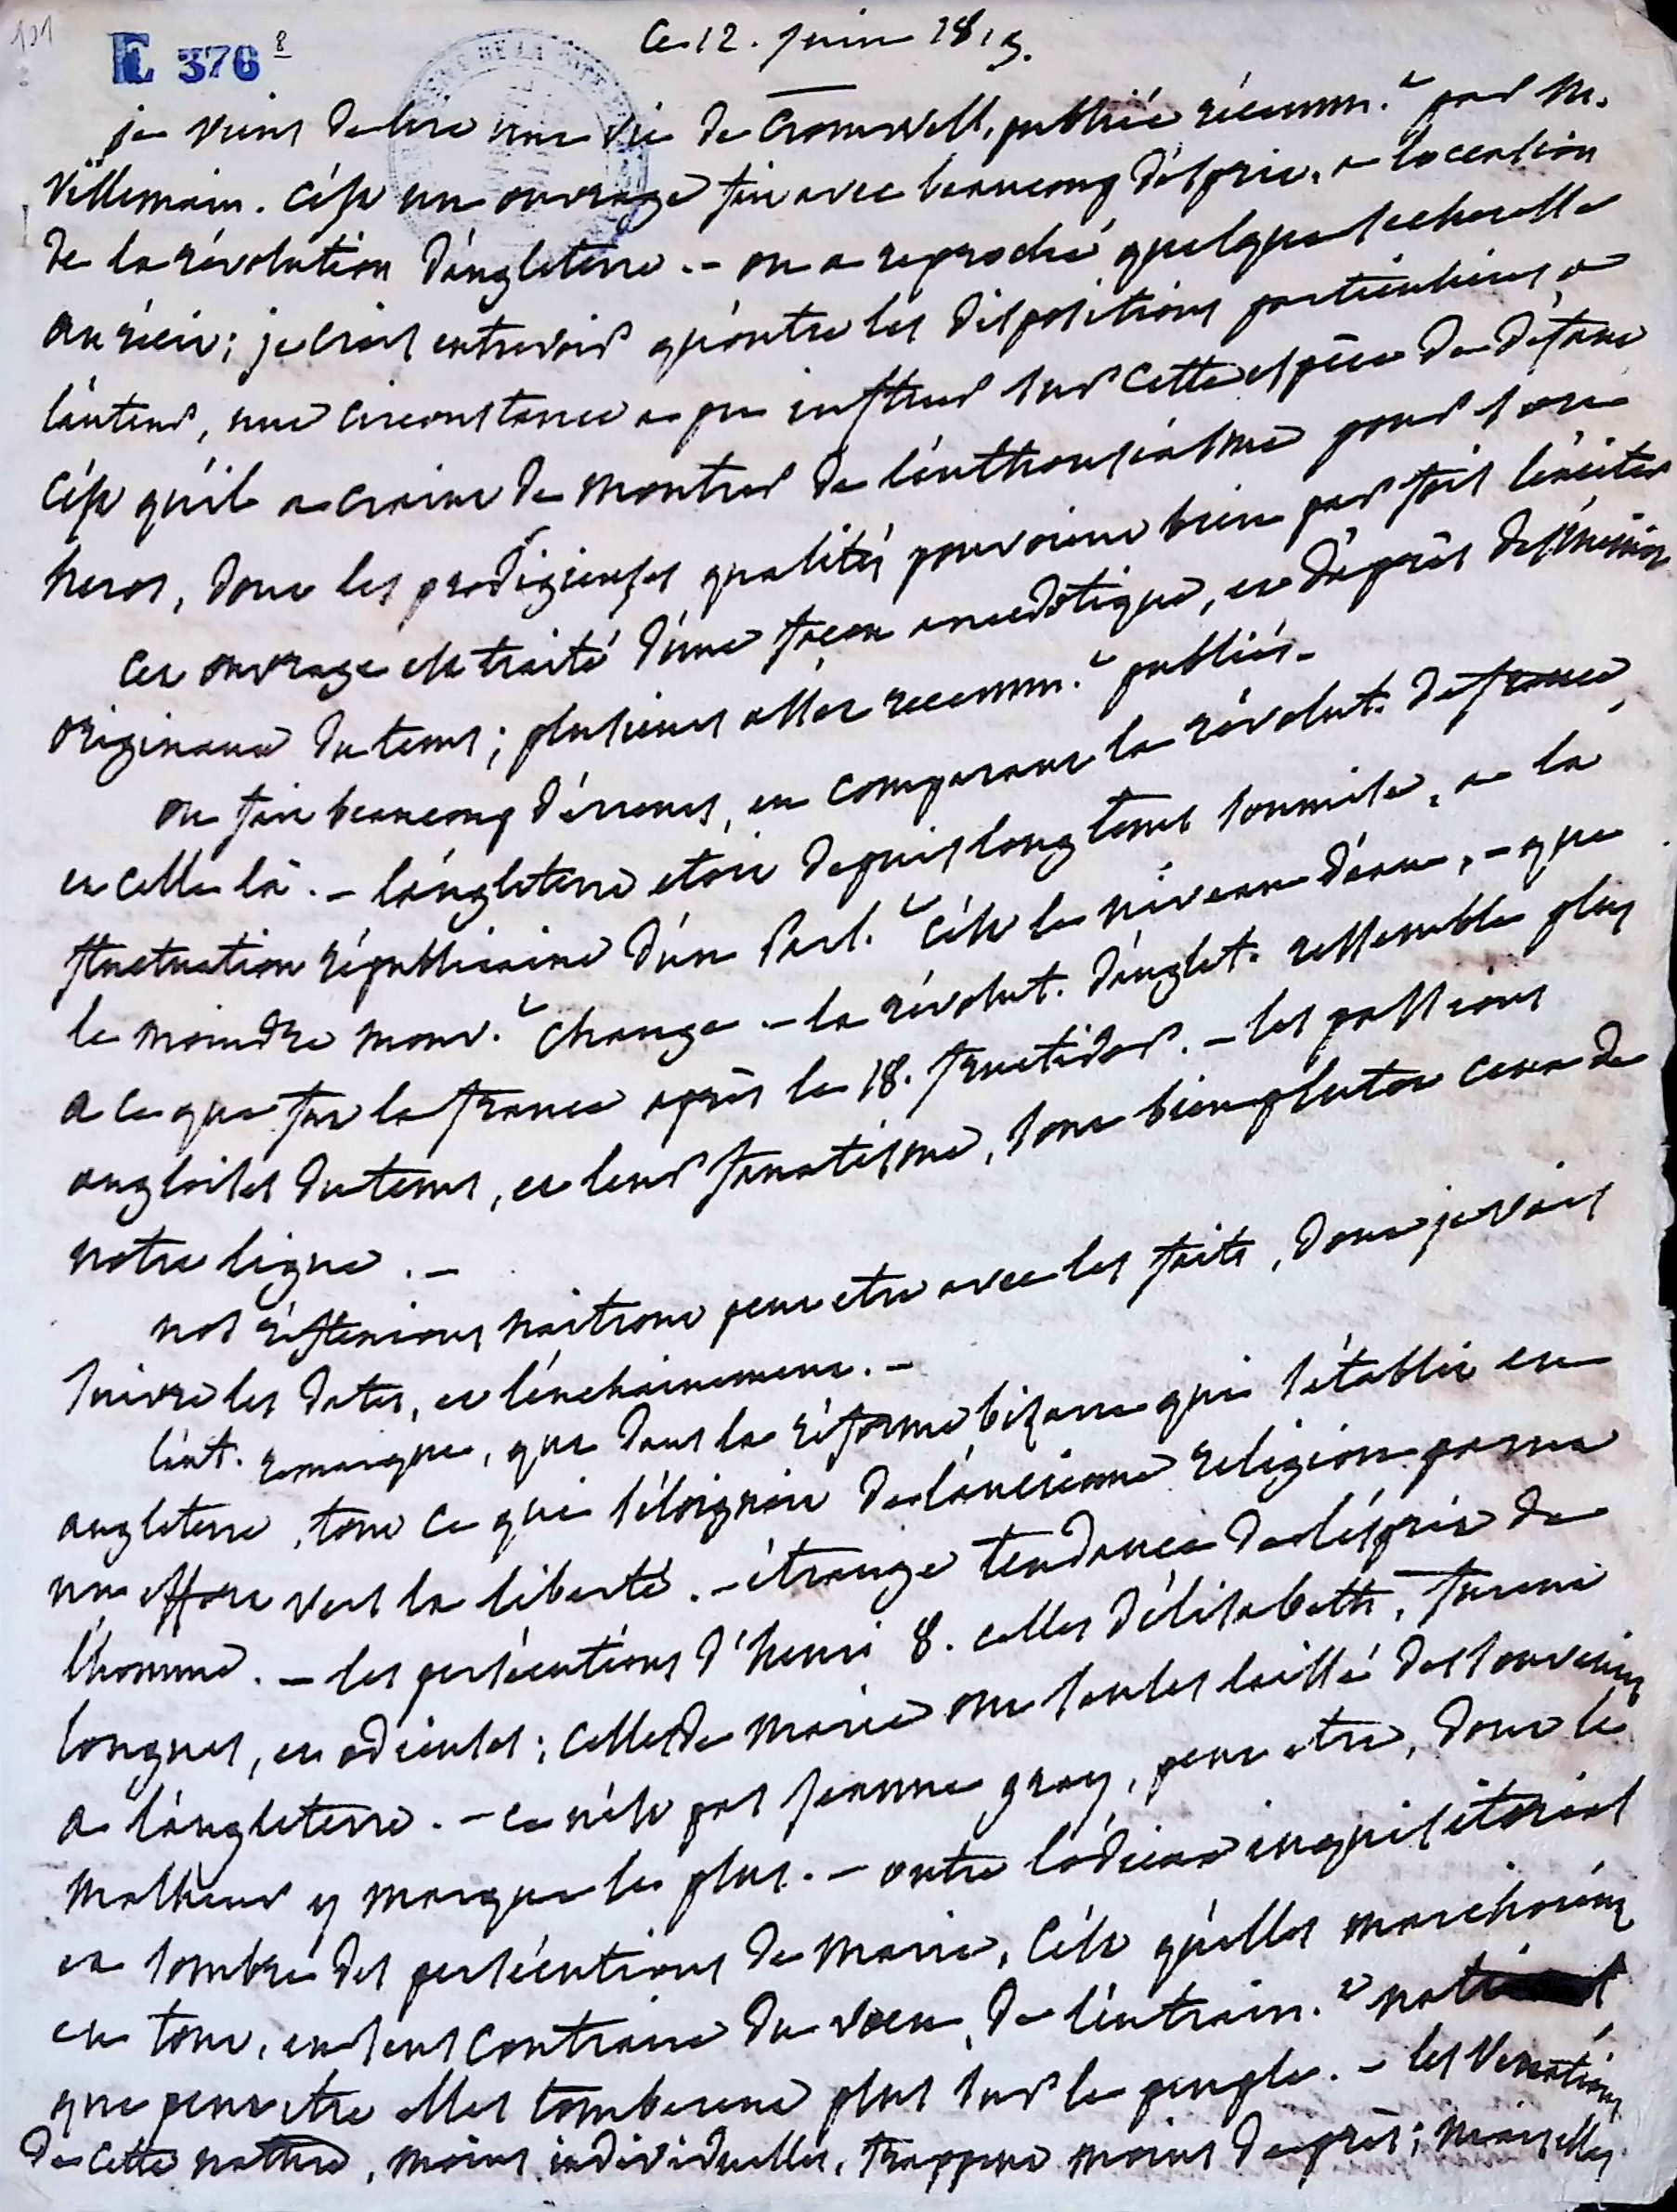 101
E 376 8
Ce 12. juin 1819.
je viens de lire une vie de Cromwell, publiée récemm.t par M.
Villemain. c'est un ouvrage fait avec beaucoup d'esprit, a l'occasion
de la révolution d'angleterre. - on a reproché quelque secheresse
au récit; je crois entrevoir qu'outre les dispositions particulieres a
l'auteur, une circonstance a pu influer sur cette espèce de défaut
c'est qu'il a craint de montrer de l'enthousiasme pour son
heros, dont les prodigieuses qualités pouvoient bien par fois l'exciter
cet ouvrage est traité d'une façon anecdotique, et d'après des mémoires
originaux du tems; plusieurs assez recemm.t publiés -
on fait beaucoup d'erreurs, en comparant la révolut. de france,
et celle là. - l'angleterre etoit depuis long tems soumise, a la
fluctuation républicaine d'un Parl.t c'est le niveau d'eau, - que
le moindre mouv.t change - la révolut. d'anglet. ressemble plus
a ce que fut la france après le 18. fructidor. - les passions
angloises du tems, et leur fanatisme, sont bien plutot ceux de
notre ligue. -
nos réflexions naitront peut etre avec les faits, dont je vais
suivre les dates, et l'enchainement. -
l'aut. remarque, que dans la réforme bizarre qui s'établit en
angleterre, tout ce qui s'éloignoit de l'ancienne religion parut
un effort vers la liberté. - étrange tendance de l'esprit de
l'homme. - les persécutions d'henri 8. celles d'élisabeth, furent
longues, et odieuses; celles de Marie ont seules laissé des souvenirs
a l'angleterre. - ce n'est pas jeanne gray, peut etre, dont le
malheur y marque le plus. - outre l'odieux inquisitorial
et sombre des persécutions de marie, c'est qu'elles marchoient
en tout, en sens contraire du voeu, de l'entrain.t
que peut etre elles tomberent plus sur le peuple. - les vexations
de cette nature, moins individuelles, frappent moins de près; mais elles